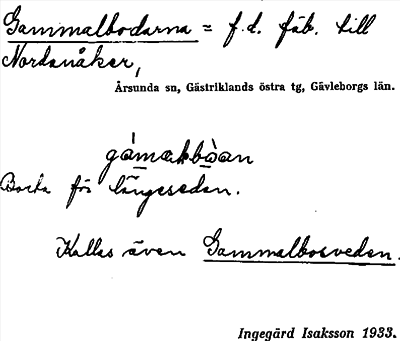 Gammalbodarna = f.d. fäb. till
Nordanåker,
Årsunda sn, Gästriklands östra tg, Gävleborgs län.
gàmakbòan
Borta för längesedan.
Kallas även Gammalbosveden.
Ingegärd Isaksson 1933.